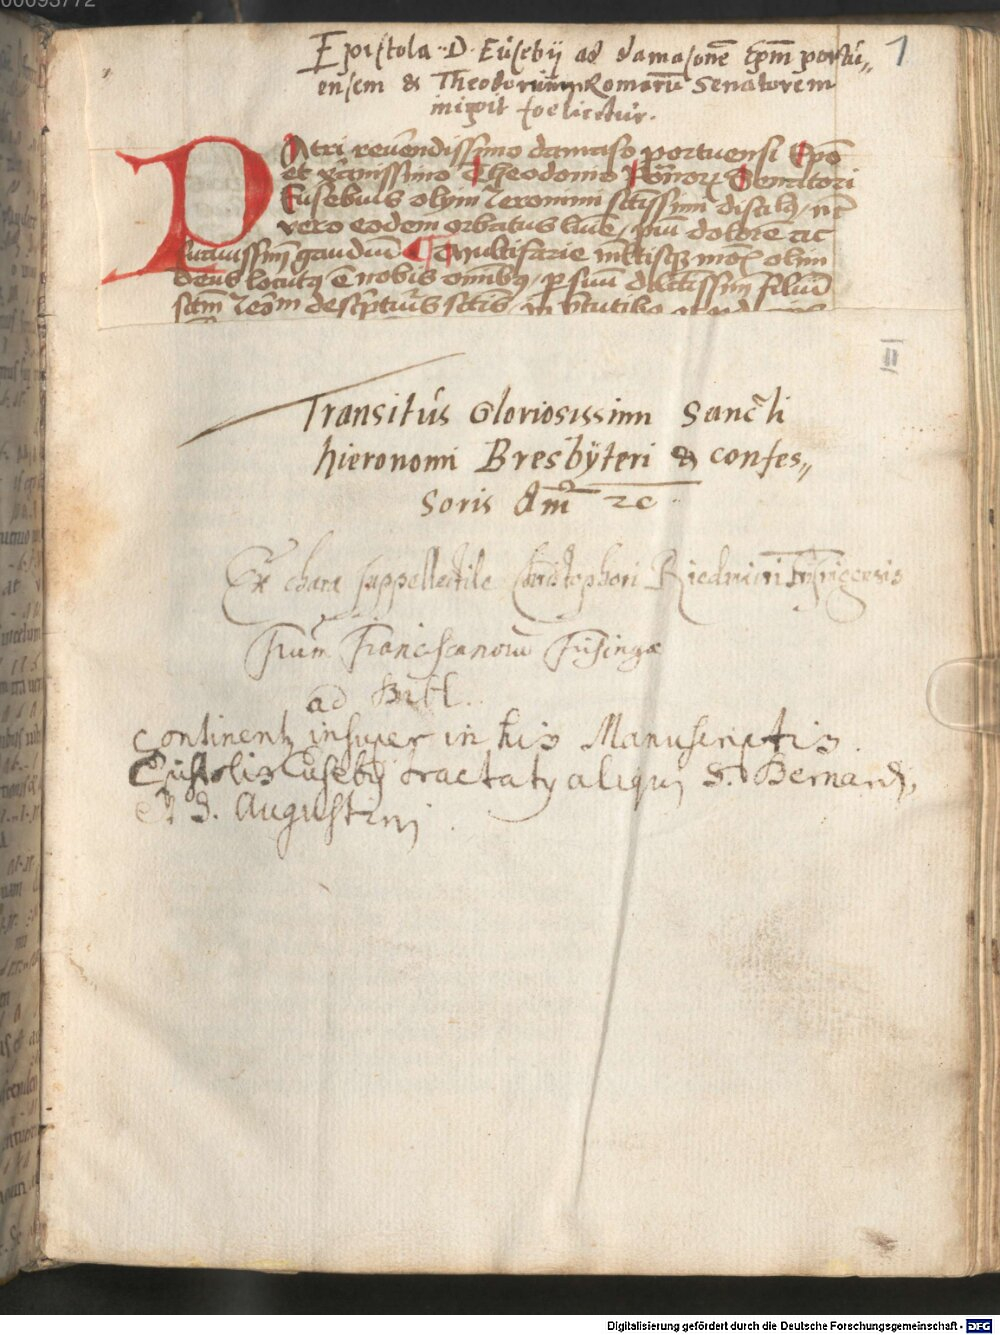 00093772
1
Epistola D. Eusebÿ ad damasonē Epm̄ portu„
ensem & Theodorum Romanorū Senatorem
incipit foeliciter.
PAtri reverendissimo damaso portuensi Epō
et xp̄ianissimo Theodonio Romanorꝝ Senatori
Eusebius olym Ieronimi sctīssimi discipulꝰ, nc̄
vero eodem orbatus lumē, piū dolorē ac
suavissimū gaudiū Multifarie multisqꝫ modꝭ olim
deus locutꝰ ē nobis omnibꝰ, per suū dilectissimū filiū
sctm̄ Ieōm̄ de scripturis sctīs, in virtutibꝰ
II
Transitus Gloriosissimi Sancti
hieronomi Bresbÿteri & confes„
soris Am̄ 2c
Ex chara suppellectile Christophori Riedmiri Frisingensis
Frum Franciscanorū Frisingæ
ad Bibl.
continentꝛ insuper in his Manuscriptis
Epistolis Eusebÿ tractatꝰ aliqui S. Bernardi,
Et S. Augustini
Digitalisierung gefördert durch die Deutsche Forschungsgemeinschaft - DFG